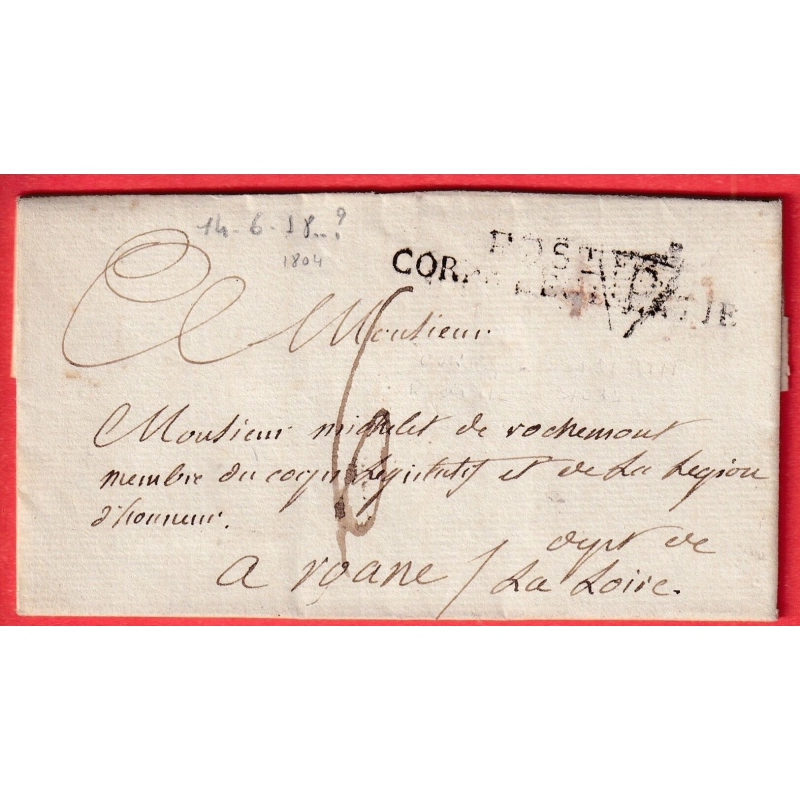 14-6-18..?
1804
POSTE
CORPS LEGISLATIF
Monsieur
Monsieur michelet de rochemont
membre du corps Legislatif et de La Legion
d'honneur.
a roane / dept de
La Loire.
6